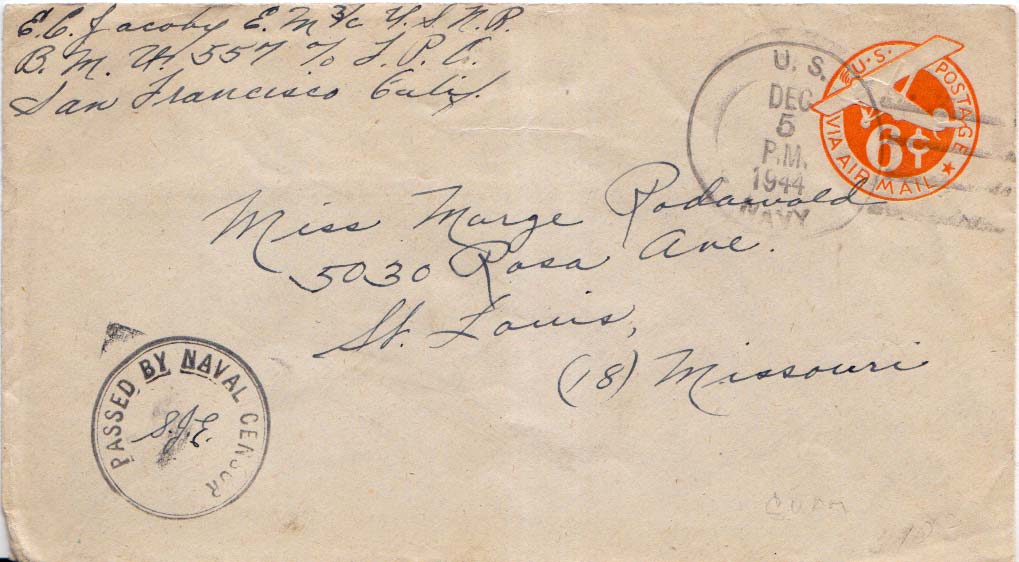 E.C. Jacoby E.M 3/c U.S.N.R.
B.M.U. 557 % F.P.O.
San Francisco Calif.
U.S.
DEC
5
P.M.
1944
NAVY
U.S. POSTAGE
6¢
VIA AIR MAIL
Miss Marge Rodawald
5030 Rosa Ave.
St. Louis,
(18) Missouri
PASSED BY NAVAL CENSOR
S.J.E.